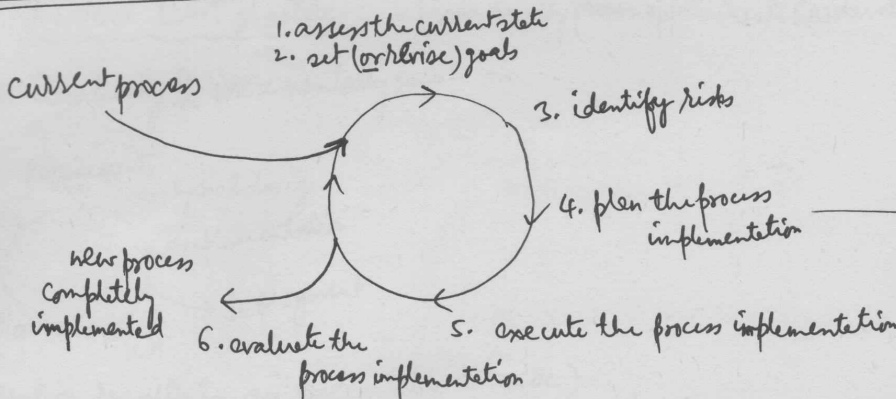 1. assess the current state
2. set (or revise) goals
current process
3. identify risks
4. plan the process
implementation
5. execute the process implementation
6. evaluate the
process implementation
new process
completely
implemented